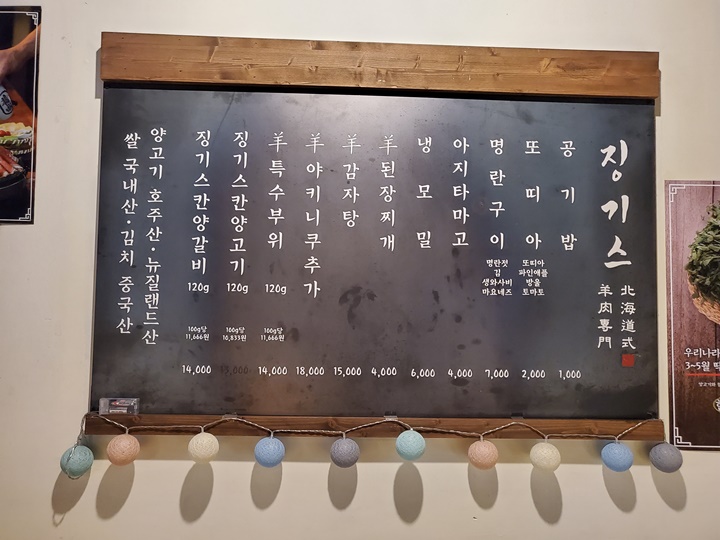 징기스
北海道式
羊肉専門
공기밥
1,000
또띠아
또띠아
파인애플
방울
토마토
2,000
명란구이
명란젓
김
생와사비
마요네즈
7,000
아지타마고
4,000
냉모밀
6,000
羊된장찌개
4,000
羊감자탕
15,000
羊야키니쿠추가
18,000
羊특수부위
120g
100g당
11,666원
14,000
징기스칸양고기
120g
100g당
10,833원
13,000
징기스칸양갈비
120g
100g당
11,666원
14,000
양고기 호주산·뉴질랜드산
쌀 국내산·김치 중국산
우리나라
3~5월